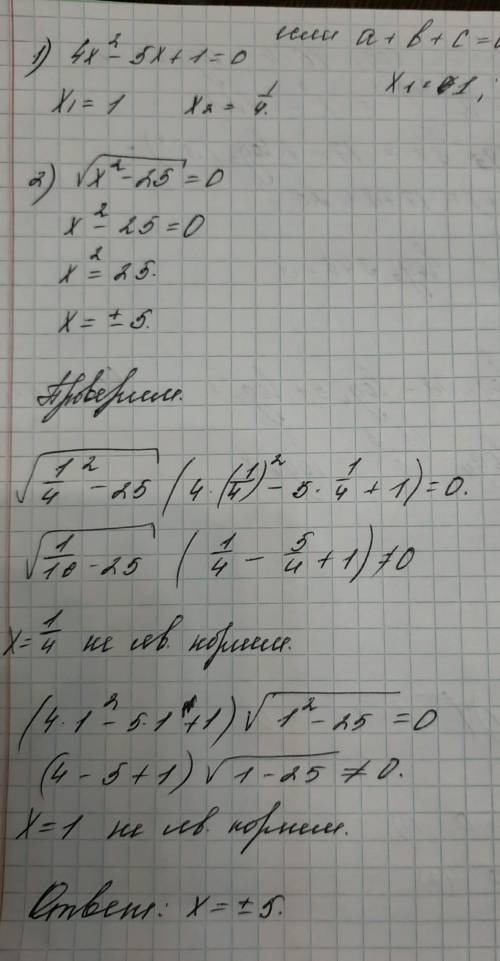 или a + b + c = 0
1) 4x² - 5x + 1 = 0
x₁ = 1,
x₁ = 1 x₂ = 1/4.
2) √(x² - 25) = 0
x² - 25 = 0
x² = 25.
x = ± 5.
Проверим.
√(1/4² - 25) (4 · (1/4)² - 5 · 1/4 + 1) = 0.
√(1/16 - 25) (1/4 - 5/4 + 1) ≠ 0
x = 1/4 не яв. корнем.
(4·1² - 5·1 + 1) √(1² - 25) = 0
(4 - 5 + 1) √(1 - 25) ≠ 0.
x = 1 не яв. корнем.
Ответ: x = ± 5.